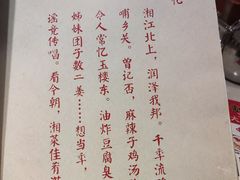 湘江北上，润泽我邦。千年流
哺乡关。曾记否，麻辣子鸡汤
令人常忆玉楼东。油炸豆腐臭
姊妹团子数二姜……想当年，
谣竞传唱。看今朝，湘菜佳肴